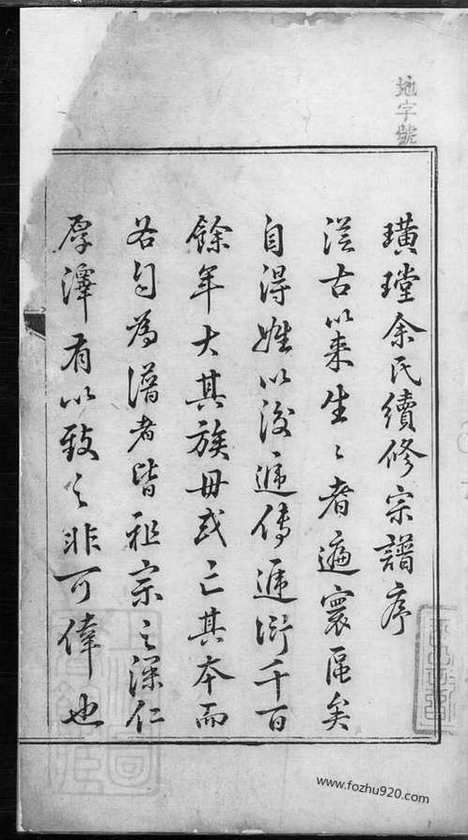 地字號
璜瑝余氏續修宗譜序
從古以来生〻者遍寰區矣
自得姓以後遞傳遞衍千百
餘年大其族毋或亡其本而
各自為譜者皆祖宗之深仁
厚澤有以致之非可倖也
www.fozhu920.com